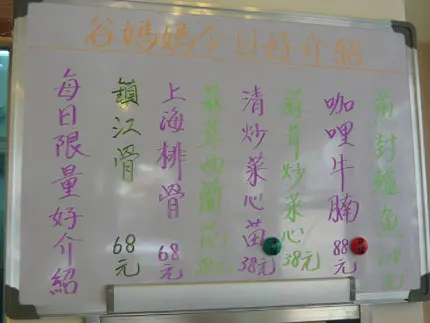 谷媽媽今日好介紹
封鱸魚
咖哩牛腩 88元
蒜茸炒菜心 38元
清炒菜心苗 38元
蒜茸西蘭花
上海排骨 68元
鎮江骨 68元
每日限量好介紹